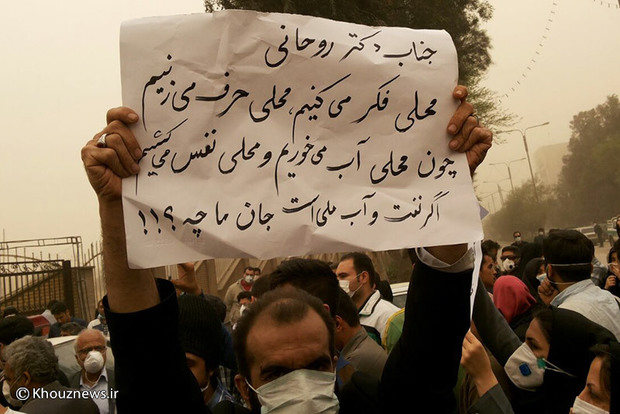 جناب دکتر روحانی
محلی فکر می کنیم، محلی حرف می زنیم
چون محلی آب می خوریم و محلی نفس می کشیم
اگر نفت و آب ملی است جان ما چه؟!!
© Khouznews.ir